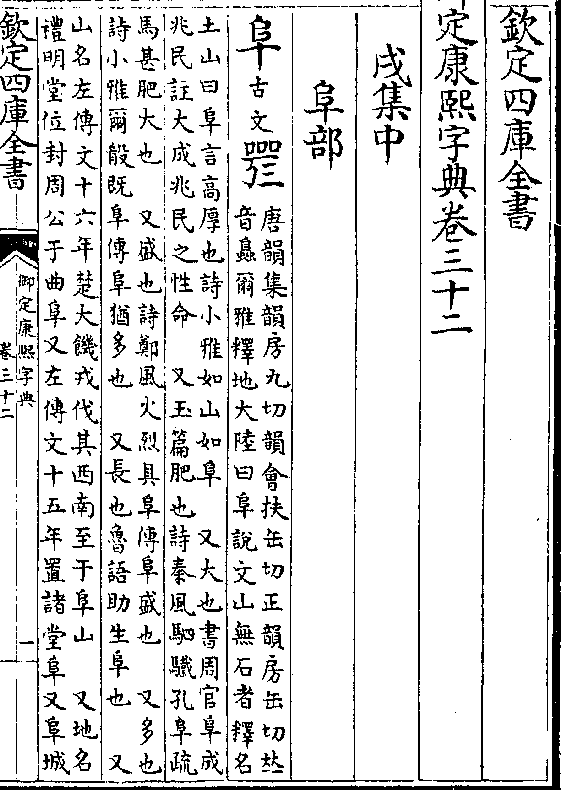 欽定四庫全書
御定康熙字典卷三十二
戌集中
阜部
阜 古文
唐韻集韻房九切韻會扶缶切正韻房缶切𠀤
音 爾雅釋地大陸曰阜說文山無石者釋名
土山曰阜言高厚也詩小雅如山如阜 又大也書周官阜成
兆民註大成兆民之性命 又玉篇肥也詩秦風駟驖孔阜疏
馬甚肥大也 又盛也詩鄭風火烈具阜傳阜盛也 又多也
詩小雅爾殽既阜傳阜猶多也 又長也魯語助生阜也 又
山名左傳文十六年楚大饑戎伐其西南至于阜山 又地名
禮明堂位封周公于曲阜又左傳文十五年置諸堂阜又阜城
欽定四庫全書
御定康熙字典
卷三十二
一